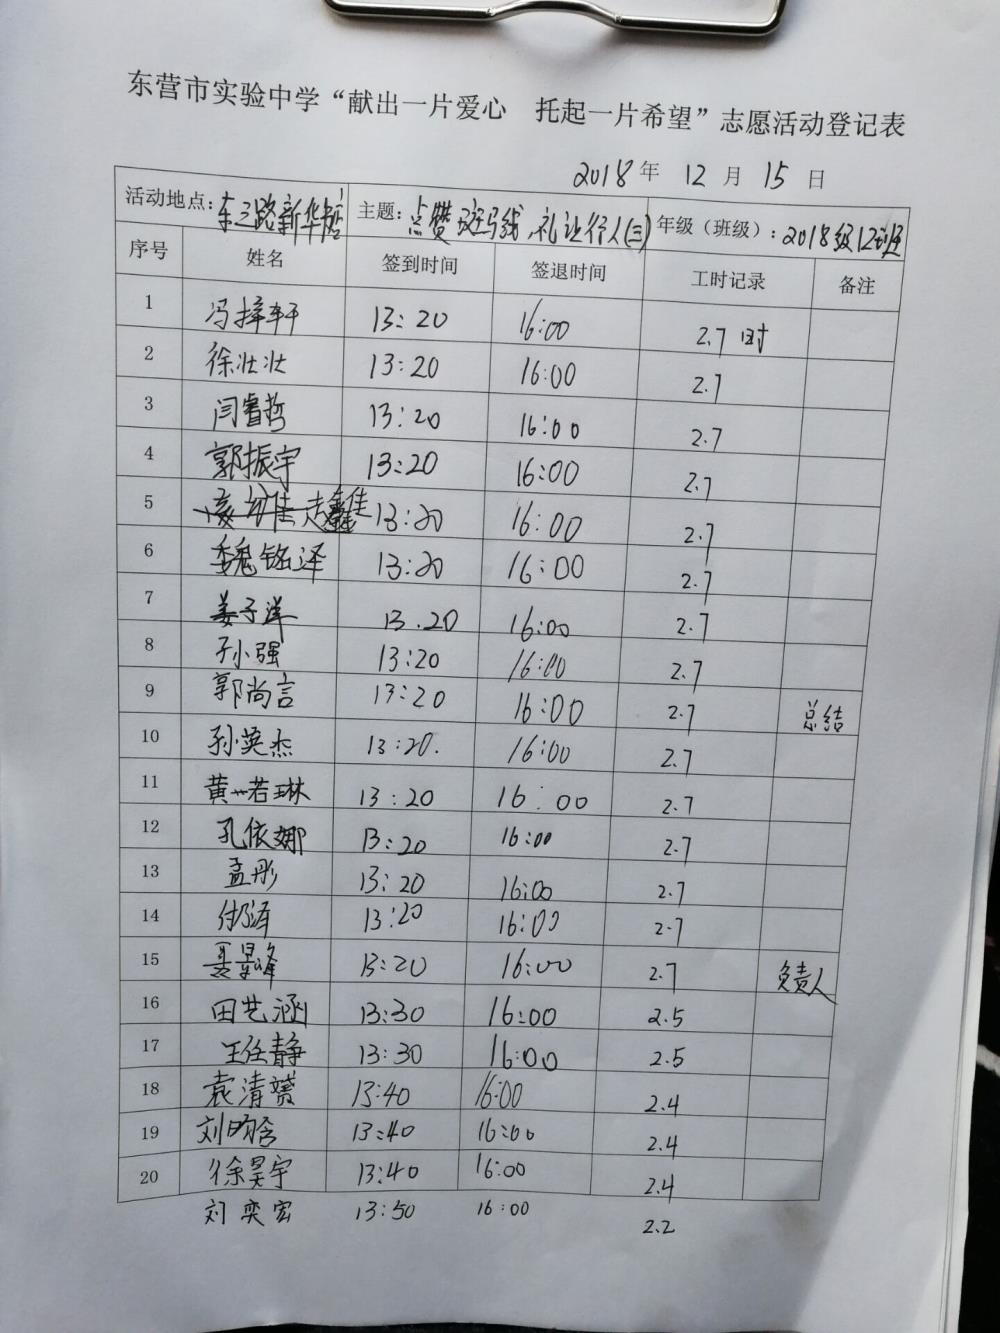 东营市实验中学“献出一片爱心 托起一片希望”志愿活动登记表
2018年 12月 15日
活动地点：东三路新华店 主题：点赞斑马线,礼让行人(三) 年级（班级）：2018级12班
序号 姓名 签到时间 签退时间 工时记录 备注
1 冯梓轩 13:20 16:00 2.7时
2 徐壮壮 13:20 16:00 2.7
3 闫睿哲 13:20 16:00 2.7
4 郭振宇 13:20 16:00 2.7
5 赵鑫佳 13:20 16:00 2.7
6 魏铭泽 13:20 16:00 2.7
7 姜子洋 13.20 16:00 2.7
8 于小强 13:20 16:00 2.7
9 郭尚言 13:20 16:00 2.7 总结
10 孙英杰 13:20. 16:00 2.7
11 黄若琳 13:20 16:00 2.7
12 孔依娜 13:20 16:00 2.7
13 孟彤 13:20 16:00 2.7
14 13:20 16:00 2.7
15 聂景峰 13:20 16:00 2.7 负责人
16 田艺涵 13:30 16:00 2.5
17 王任静 13:30 16:00 2.5
18 袁清赟 13:40 16:00 2.4
19 刘昀晗 13:40 16:00 2.4
20 徐昊宇 13:40 16:00 2.4
刘奕宏 13:50 16:00 2.2